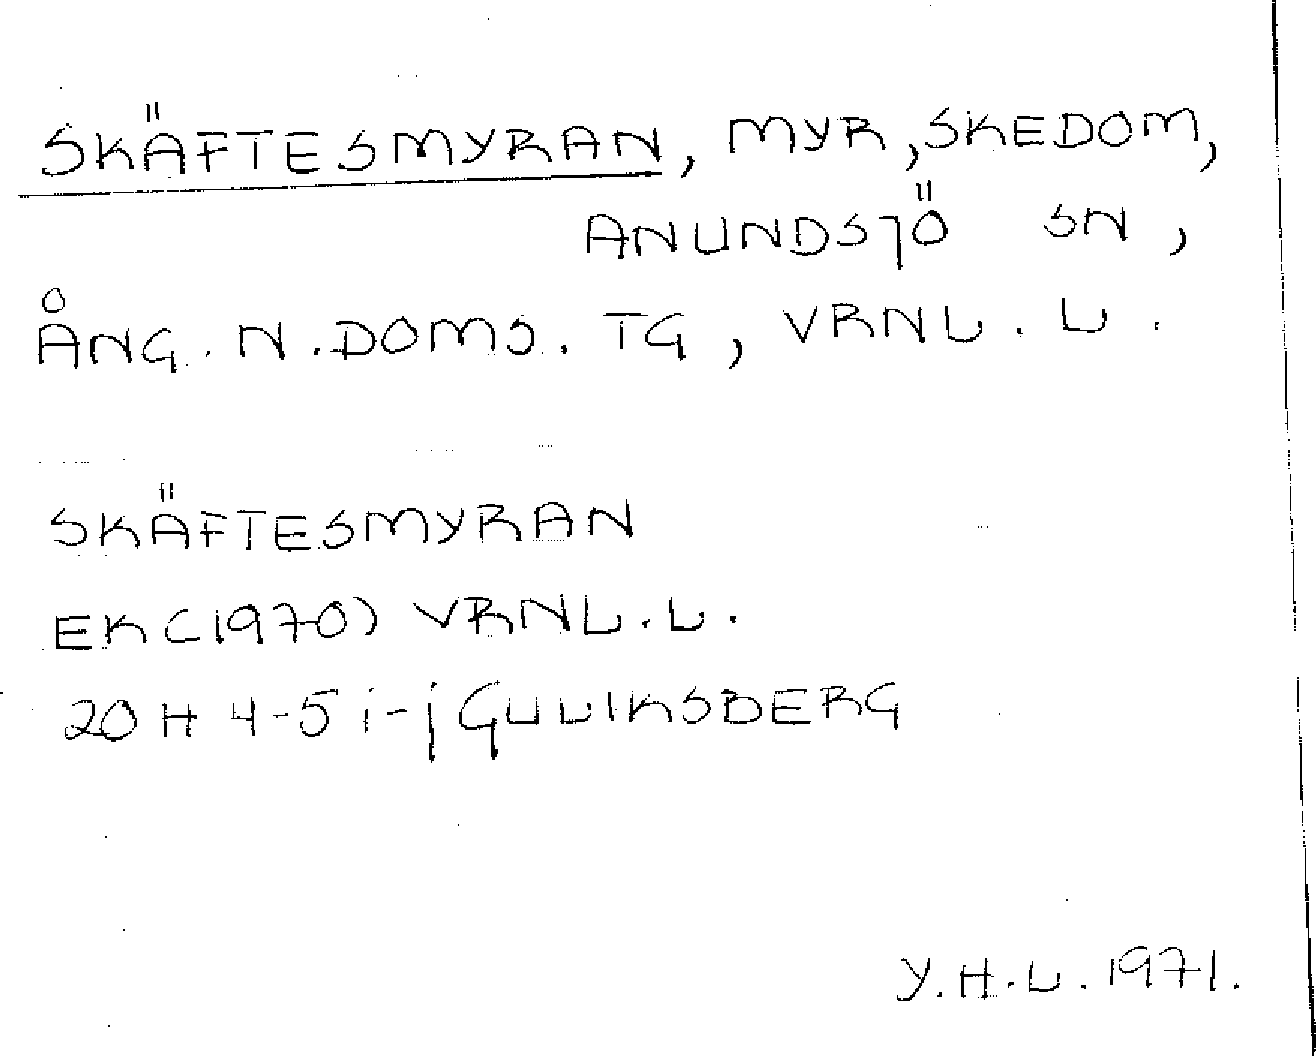 SKÄFTESMYRAN, MYR, SKEDOM,
ANUNDSJÖ SN,
ÅNG. N. DOMS. TG, VRNL. L.
SKÄFTESMYRAN
EK (1970) VRNL. L.
20 H 4-5 i-j GULLIKSBERG
Y. H. L. 1971.